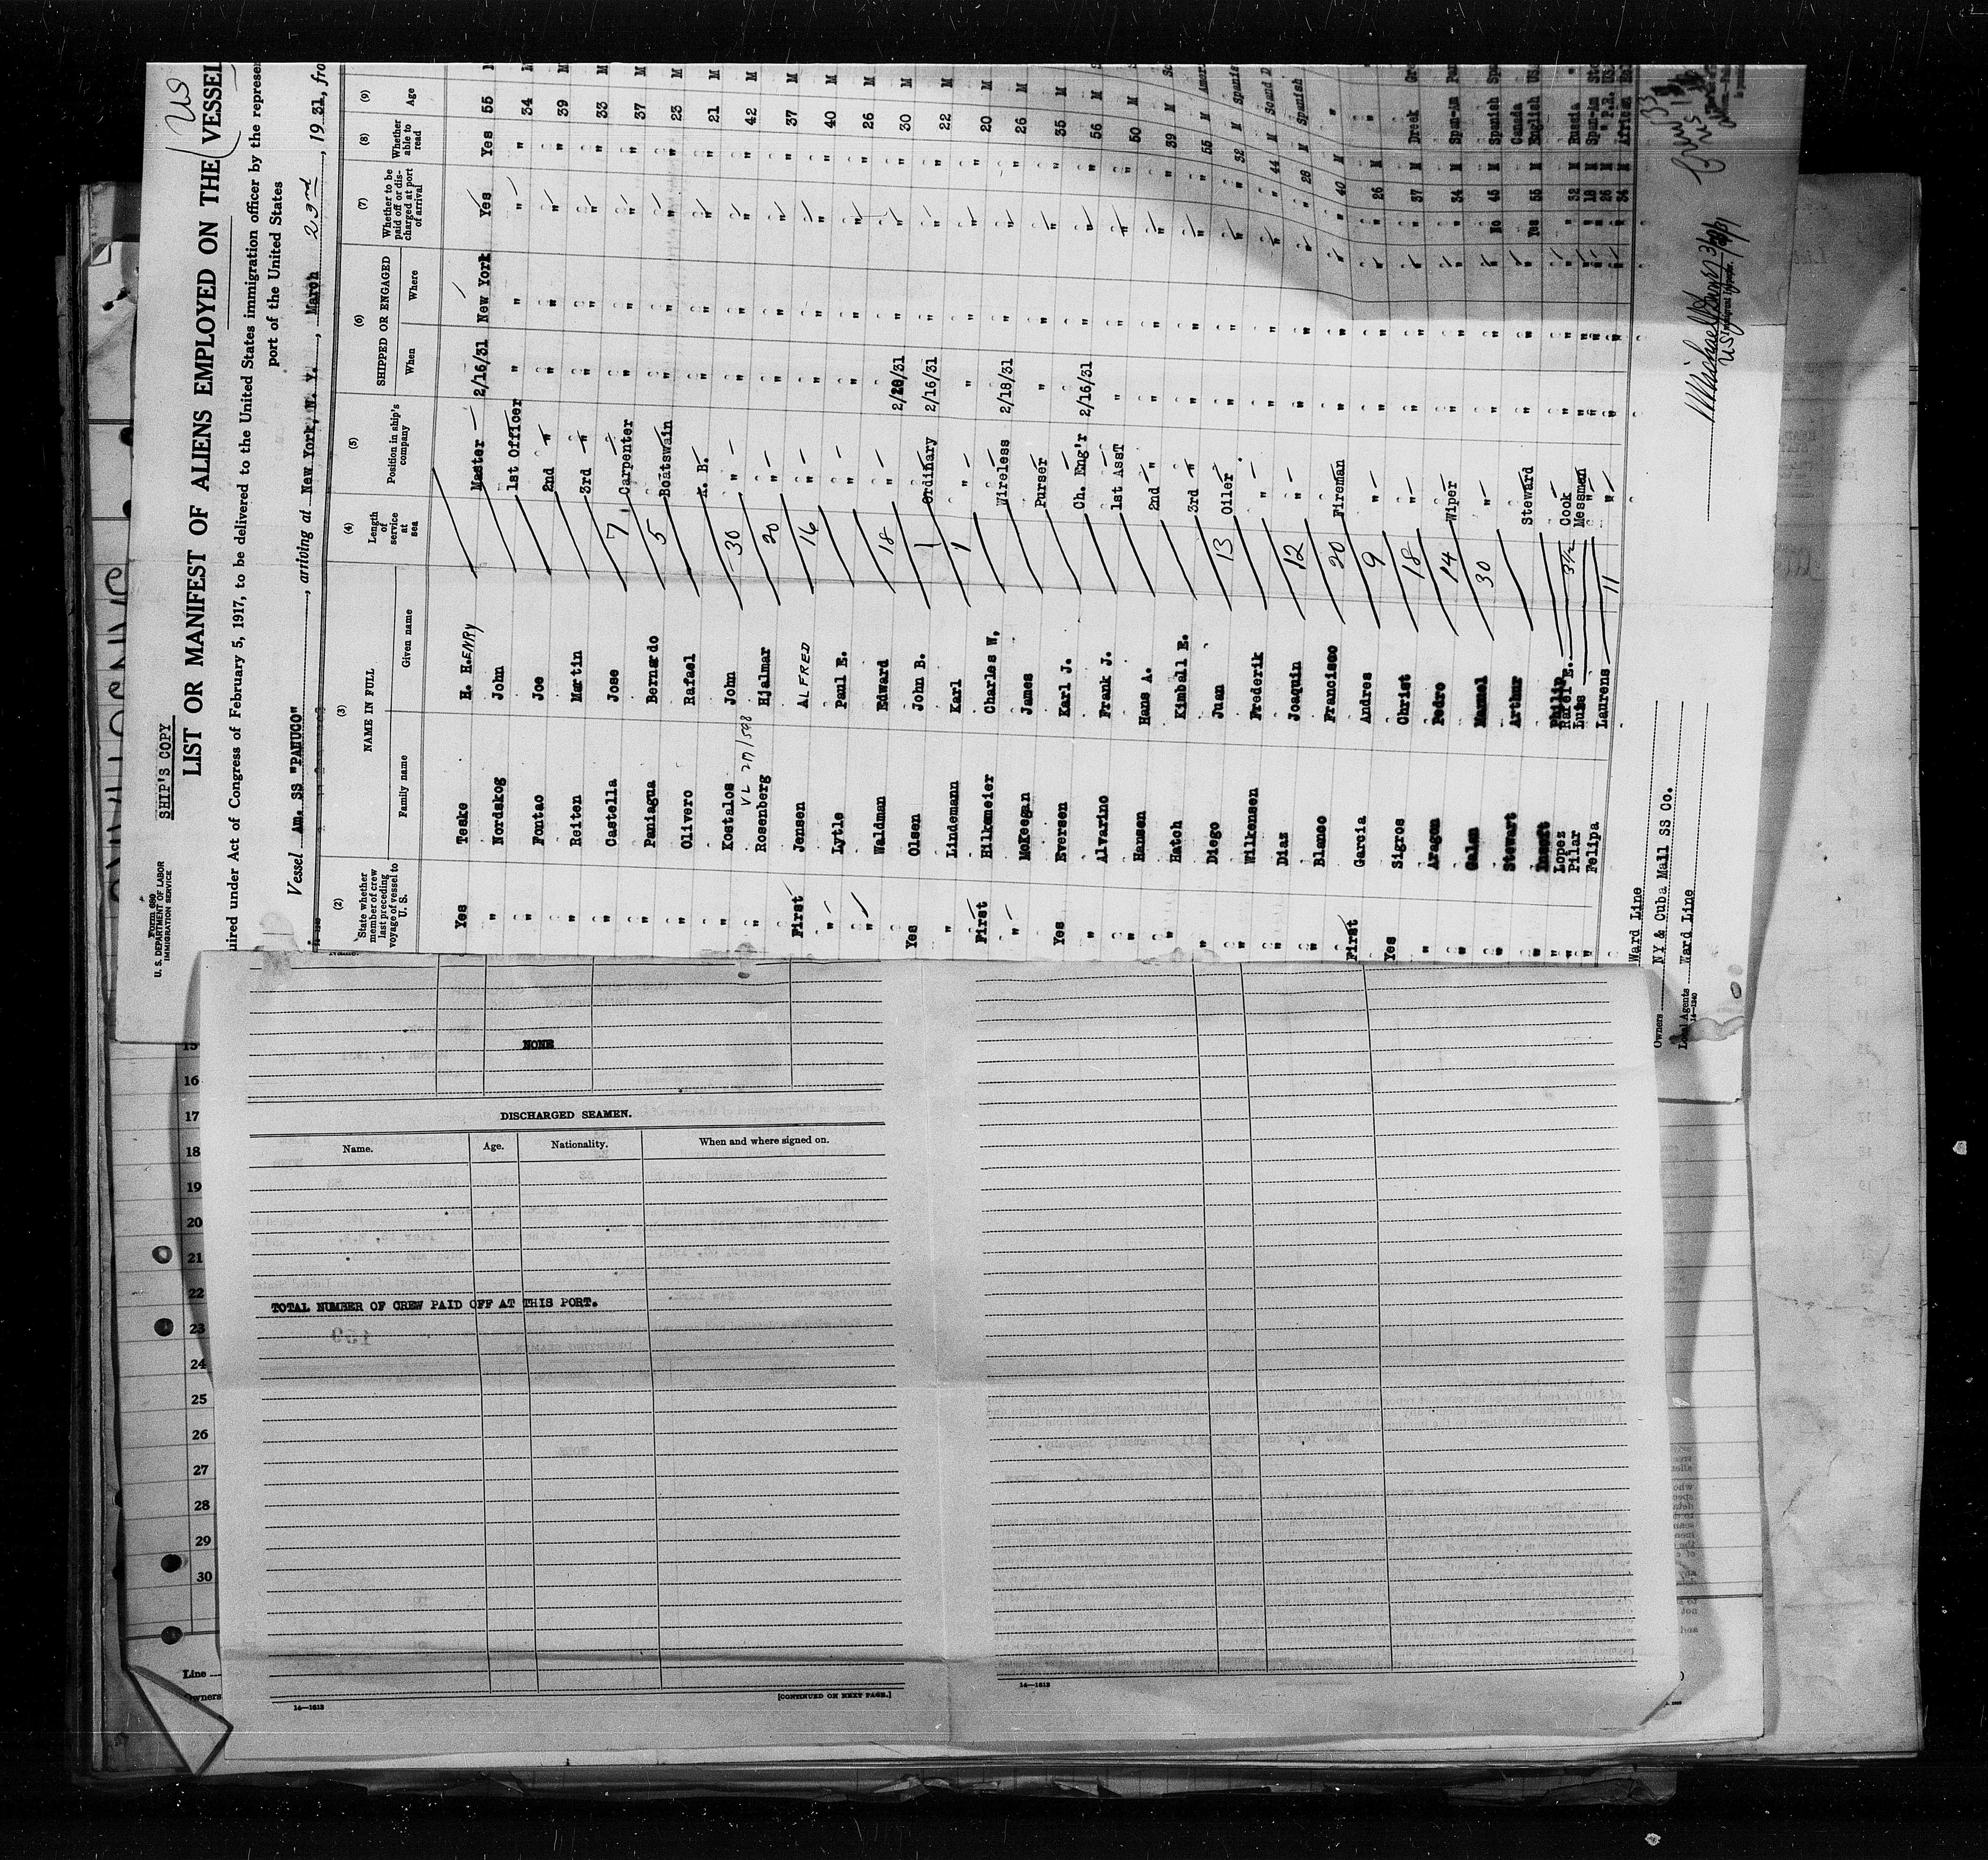 SHIP'S COPY
Form 680
U. S. DEPARTMENT OF LABOR
IMMIGRATION SERVICE
US
LIST OR MANIFEST OF ALIENS EMPLOYED ON THE VESSEL
uired under Act of Congress of February 5, 1917, to be delivered to the United States immigration officer by the represen
port of the United States
Vessel Am. SS "PANUCO", arriving at New York, N. Y., March 23rd, 1931, fro
(2) (3) (4) (5) (6) (7) (8) (9)
State whether member of crew last preceding voyage of vessel to U. S.
NAME IN FULL
Family name Given name
Length of service at sea
Position in ship's company
SHIPPED OR ENGAGED
When Where
Whether to be paid off or discharged at port of arrival
Whether able to read
Age
Yes Teske H. HENRY Master 2/16/31 New York Yes Yes 55
" Nordskog John 1st Officer " " " " 34 M
" Fontao Joe 2nd " " " " " 39 M
" Reiten Martin 3rd " " " " " 33 M
" Castella Jose 7 Carpenter " " " " 37 M
" Paniagua Bernardo 5 Boatswain " " " " 23 M
" Olivero Rafael A. B. " " " " 21 M
" Kostalos John 30 " " " " " " 42 M
VL 27/598
" Rosenberg Hjalmar 20 " " " " " " 37 M
First Jensen ALFRED 16 " " " " " " 40 M
" Lytle Paul E. " " " " " " 26 M
" Waldman Edward 18 " " 2/28/31 " " " 30 M
Yes Olsen John B. 1 Ordinary 2/16/31 " " " 22 M
" Lindemann Karl 1 " " " " " " 20 M
First Hilkemeier Charles W. Wireless 2/18/31 " " " 26 M
" McKeegan James Purser " " " " 35 M
Yes Eversen Karl J. Ch. Eng'r 2/16/31 " " " 56 M
" Alvarino Frank J. 1st AssT " " " " 50 M
" Hansen Hans A. 2nd " " " " " 39 M
" Hatch Kimball E. 3rd " " " " " 55 M Amer.
" Diego Juan 13 Oiler " " " " 32 M Spanis
" Wilkensen Frederik " " " " " " 44 M Scand D
" Diaz Joaquin 12 " " " " " " 28 M Spanish
" Blanco Francisco 20 Fireman " " " " 40 M "
First Garcia Andres 9 " " " " " " 26 M "
Yes Sigros Christ 18 " " " " " " 37 M Greek Gre
" Aragon Pedro 14 Wiper " " " " 34 M Span-Am
" Galan Manuel 30 " " " " No 45 M Spanish Spa
" Stewart Arthur Steward " " " Yes 55 M English USA
Canada
" Philip Cook " " " " 32 M Russia "
" Lopez Rafel E. 3½ Messman " " " " 18 M Span-Am
" Pilar Luis " " " " " 26 M " P.R. US
" Felipa Laurens 11 " " " " " 34 M African
Ward Line
Owners NY & Cuba Mail SS Co.
Local Agents Ward Line
14-1240
Immigrant Inspector.
Crew 33
Name.
NONE
DISCHARGED SEAMEN.
Name. Age. Nationality. When and where signed on.
TOTAL NUMBER OF CREW PAID OFF AT THIS PORT.
14—1613
[CONTINUED ON NEXT PAGE.]
14—1613
15
16
17
18
19
20
21
22
23
24
25
26
27
28
29
30
Line
Owners